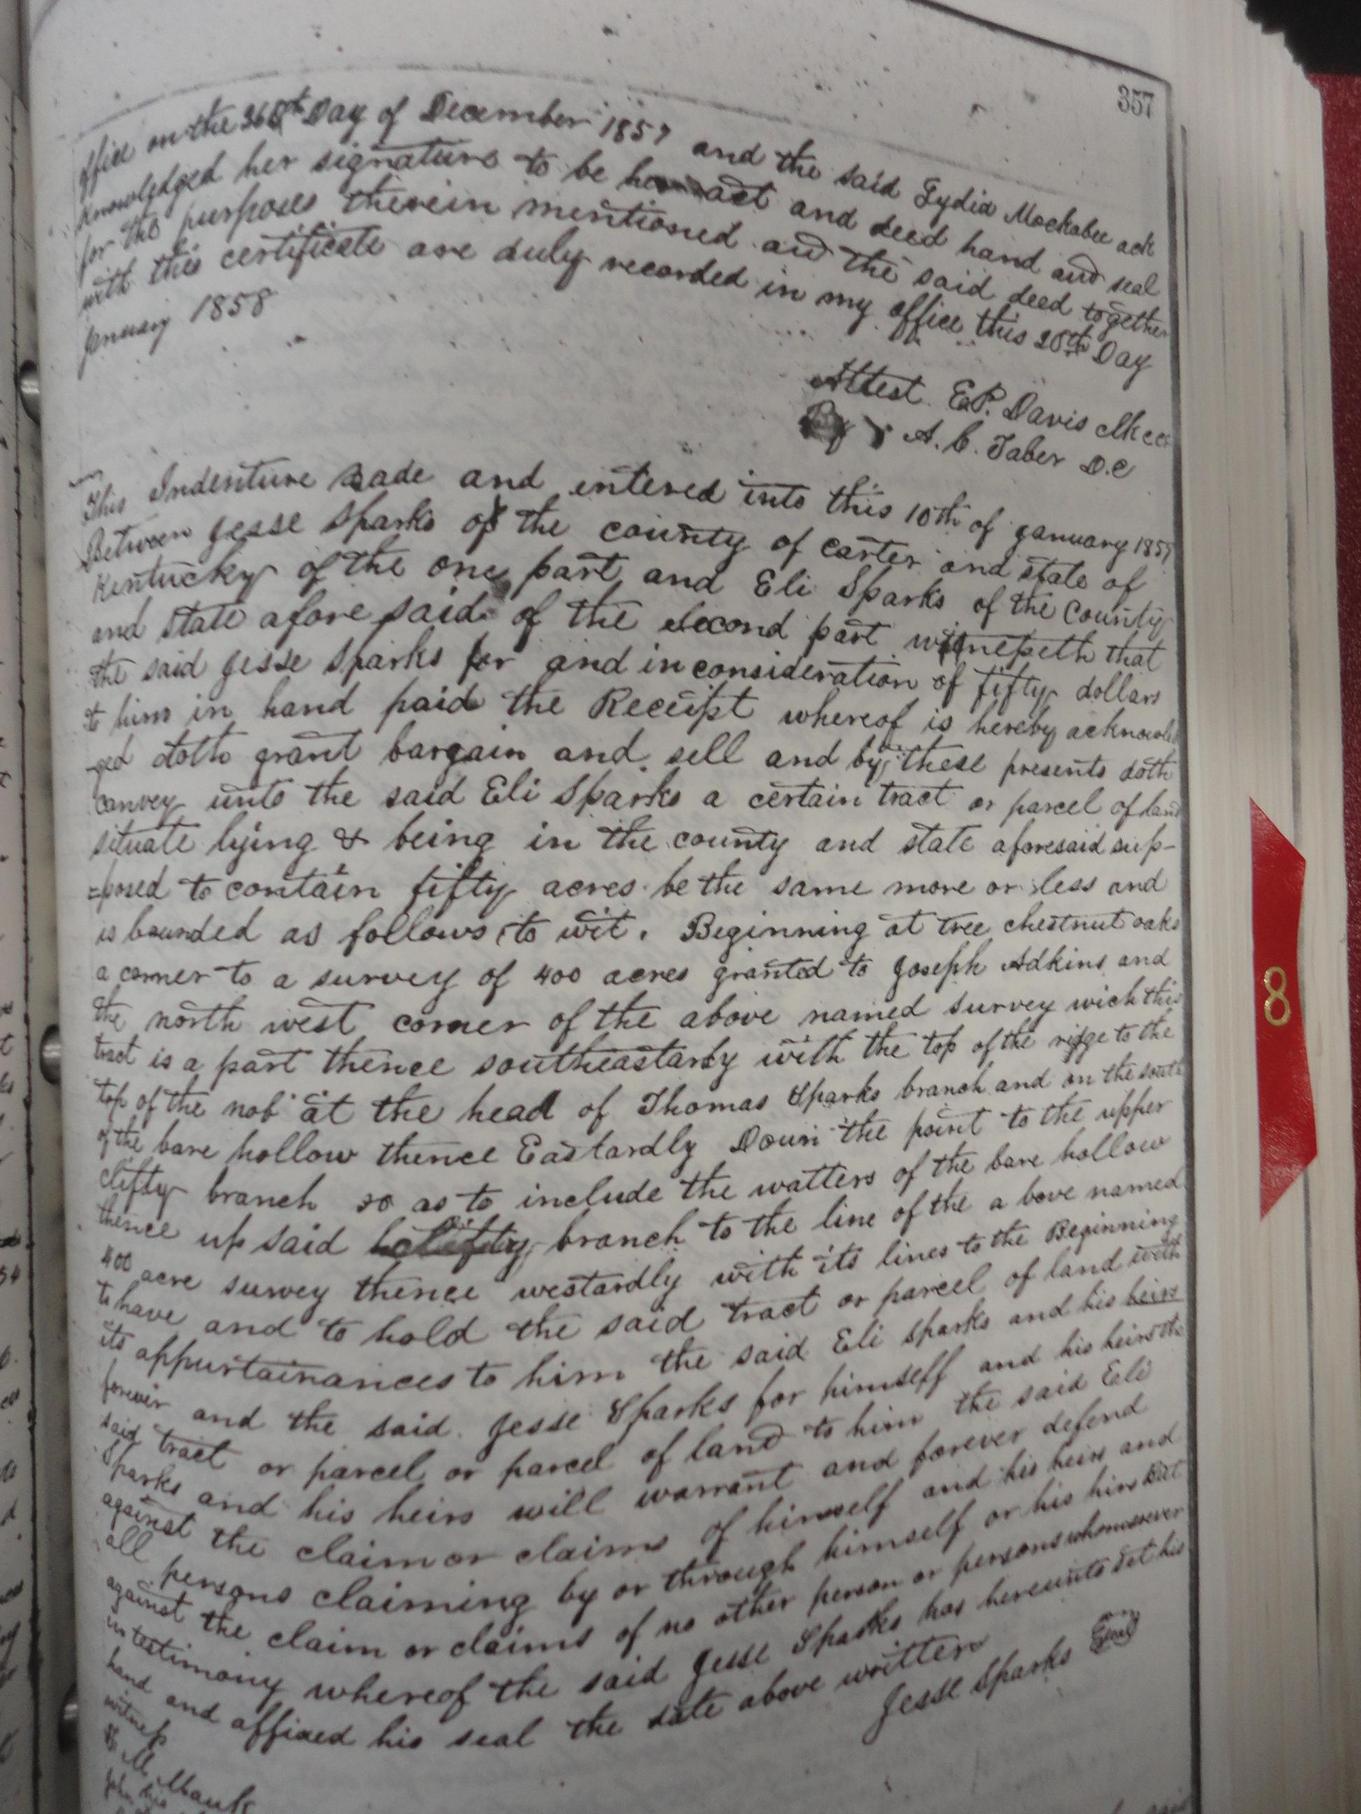 357
office on the 26th Day of December 1857 and the said Lydia Mockabee ack
knowledged her signature to be her act and deed hand and seal
for the purposes therein mentioned and the said deed together
with this certificate are duly recorded in my office this 20th Day
January 1858
Attest E.P. Davis Clk cc
By A. C. Taber D.C
This Indenture made and entered into this 10th of January 1857
Between Jesse Sparks of the county of carter and state of
Kentucky of the one part and Eli Sparks of the County
and state afore said of the second part witnesseth that
the said Jesse Sparks for and in consideration of fifty dollars
to him in hand paid the Receipt whereof is hereby acknowled
ged doth grant bargain and sell and by these presents doth
convey unto the said Eli Sparks a certain tract or parcel of land
situate lying & being in the county and state aforesaid sup-
=posed to contain fifty acres be the same more or less and
is bounded as follows to wit. Beginning at tree chestnut oaks
a corner to a survey of 400 acres granted to Joseph Adkins and
the north west corner of the above named survey wich this
tract is a part thence southeastardy with the top of the ridge to the
top of the nob at the head of Thomas Sparks branch and on the south
of the bare hollow thence Eastardly Down the point to the upper
clifty branch so as to include the watters of the bare hollow
thence up said clifty branch to the line of the a bove named
400 acre survey thence westardly with its lines to the Beginning
to have and to hold the said tract or parcel of land with
its appurtainances to him the said Eli Sparks and his heirs
forever and the said Jesse Sparks for himself and his heirs the
said tract or parcel or parcel of land to him the said Eli
Sparks and his heirs will warrant and forever defend
against the claim or claims of himself and his heirs and
all persons claiming by or through himself or his hirs But
against the claim or claims of no other person or persons whomsoever
in testimony whereof the said Jesse Sparks has hereunto set his
hand and affixed his seal the date above written
witness Jesse Sparks Seal
8